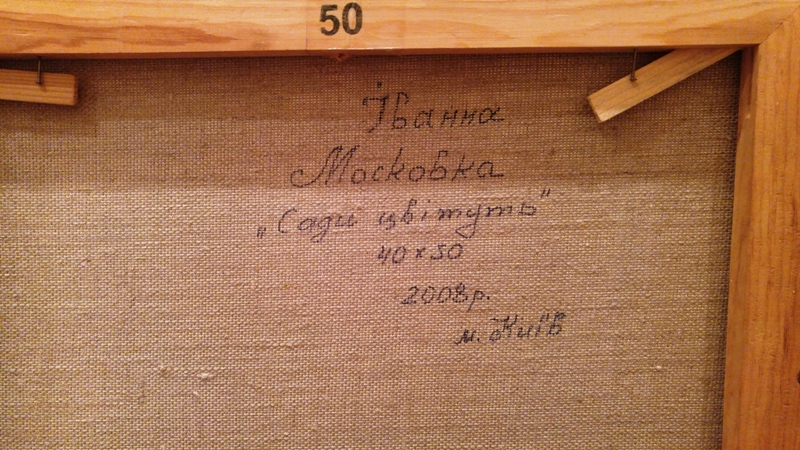 50
Іванна
Московка
„Сади цвітуть"
40 x 50
2008р.
м. Київ